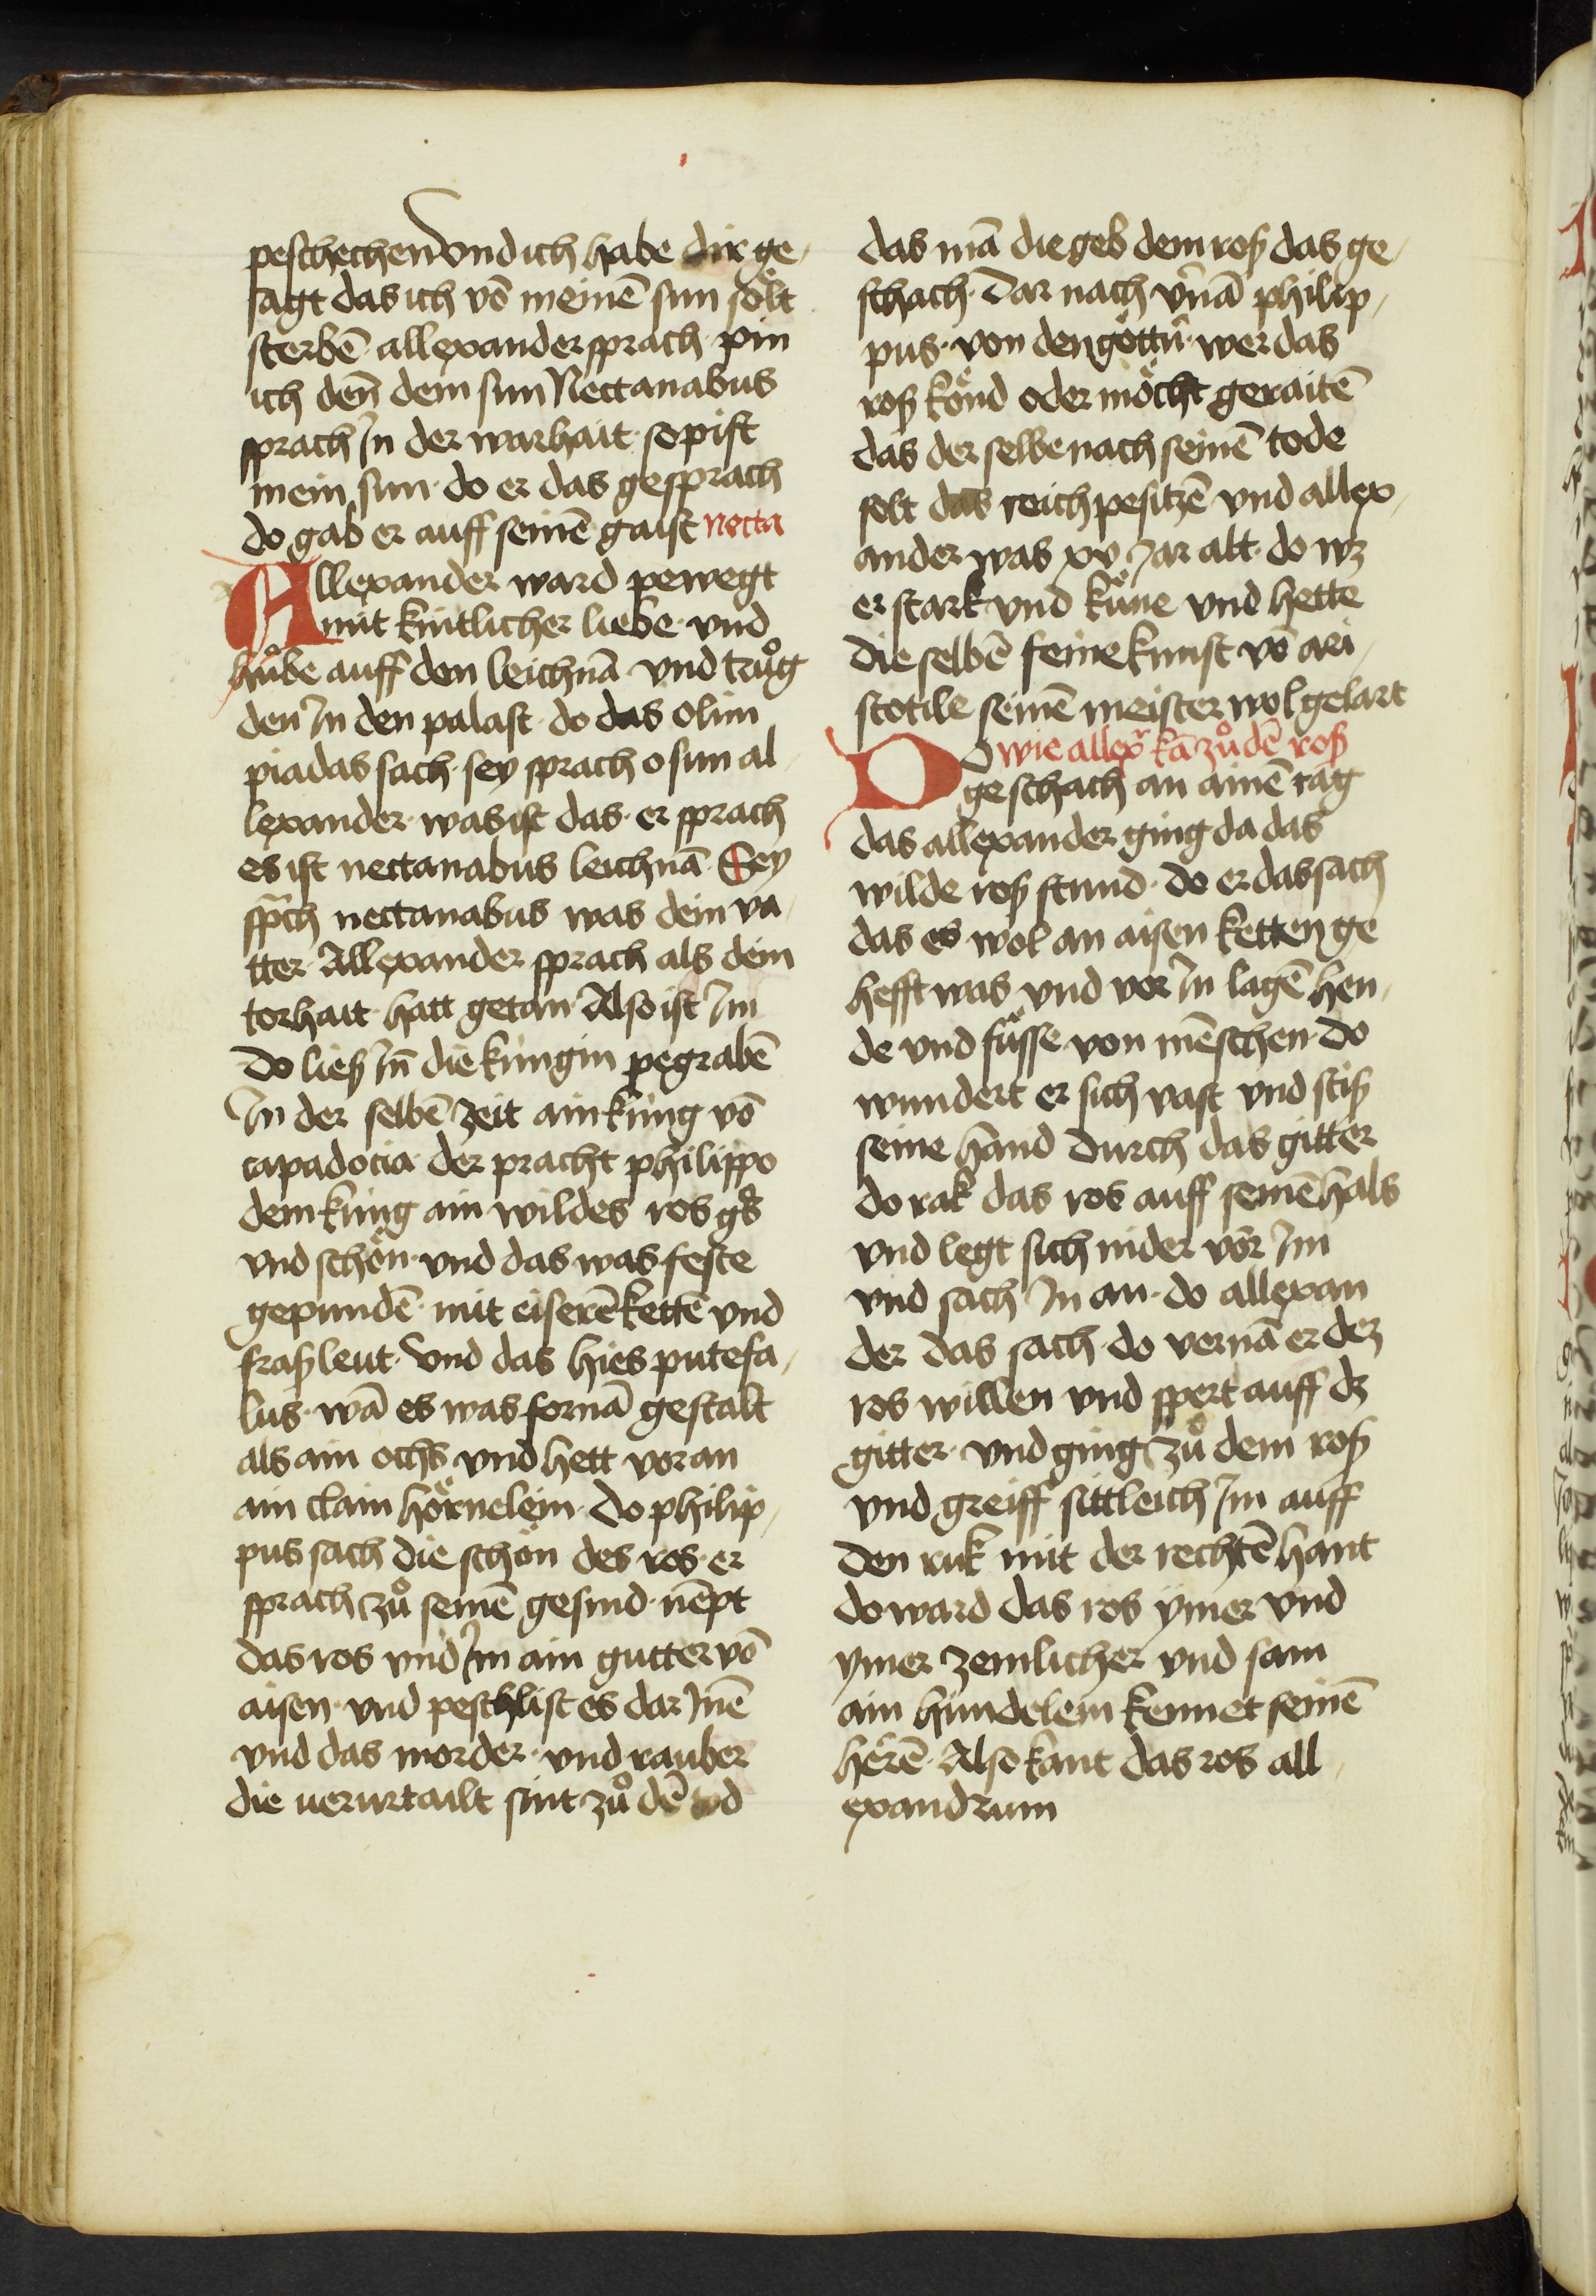 peschechen Vnd ich habe dir ge-
sagt das ich vō meinē sun sölt
sterbē · allexander sprach · pin
ich deñ dein sun Nectanabus
sprach Jn der warhait · so pist
mein sun · do er das gesprach
do gab er auff seinē gaist necta
Allexander ward pewegt
mit kintlicher liebe · vnd
hůbe auff den leichnā · vnd trůg
den Jn den palast · do das olim
piadas sach · sey sprach o sun al
lexander · was ist das · er sprach
es ist nectanabus leichnā · Sey
sprch nectanabus was dein va-
tter · Allexander sprach als dein
torhait · hatt getan Also ist Jm
Do ließ Jn̄ die küngin pegrabē
Jn der selbē zeit ain küng vō
capadocia · der pracht philippo
dem küng ain wildes ros gͦs
vnd schön · vnd das was feste
gepundē · mit eiserē kettē vnd
fraß leut · Vnd das hies putefa-
lus · wā es was fornā gestalt
als ain ochs vnd hett voran
ain clain hörnelein · Do philip-
pus sach die schön des ros · er
sprach zů seinē gesind · nēpt
das ros vnd Jm ain gutter vō
aisen · vnd peschlist es dar Jnē
vnd das morder · vnd rauber
die uerurtailt sint zů dē tod
das mā die geb dem roß das ge-
schach · Dar nach v̄nā philip-
pus · von den göttn̄ · wer das
roß könd oder möcht geraitē
das der selbe nach seinē tode
solt das reich pesitzē vnd allex-
ander was xv Jar alt · do wz
er stark vnd küne vnd hette
die selbē feine kunst vō ari-
stotile seinē meister wol gelart
Do wie allexr kā zů dē roß
geschach an ainē tag
das allexander ging da das
wilde roß stund · do er das sach
das es wol an aisen ketten ge
hefft was vnd vor Jn lagē hen-
de vnd füsse von mēschen · Do
wundert er sich vast vnd stiß
seine hand durch das gitter
do rak das ros auff seinē hals
vnd legt sich nider vor Jm
vnd sach Jn an · do allexan
der das sach · do vernā er dez
ros willen vnd spert auff dz
gitter · vnd ging zů dem roß
vnd greiff sittleich Jm auff
den ruk mit der rechtē hant
do ward das ros ymer vnd
ymer zemlicher vnd sam
ain hundelein kennet seinē
herē · Also kant das ros all-
exandrum